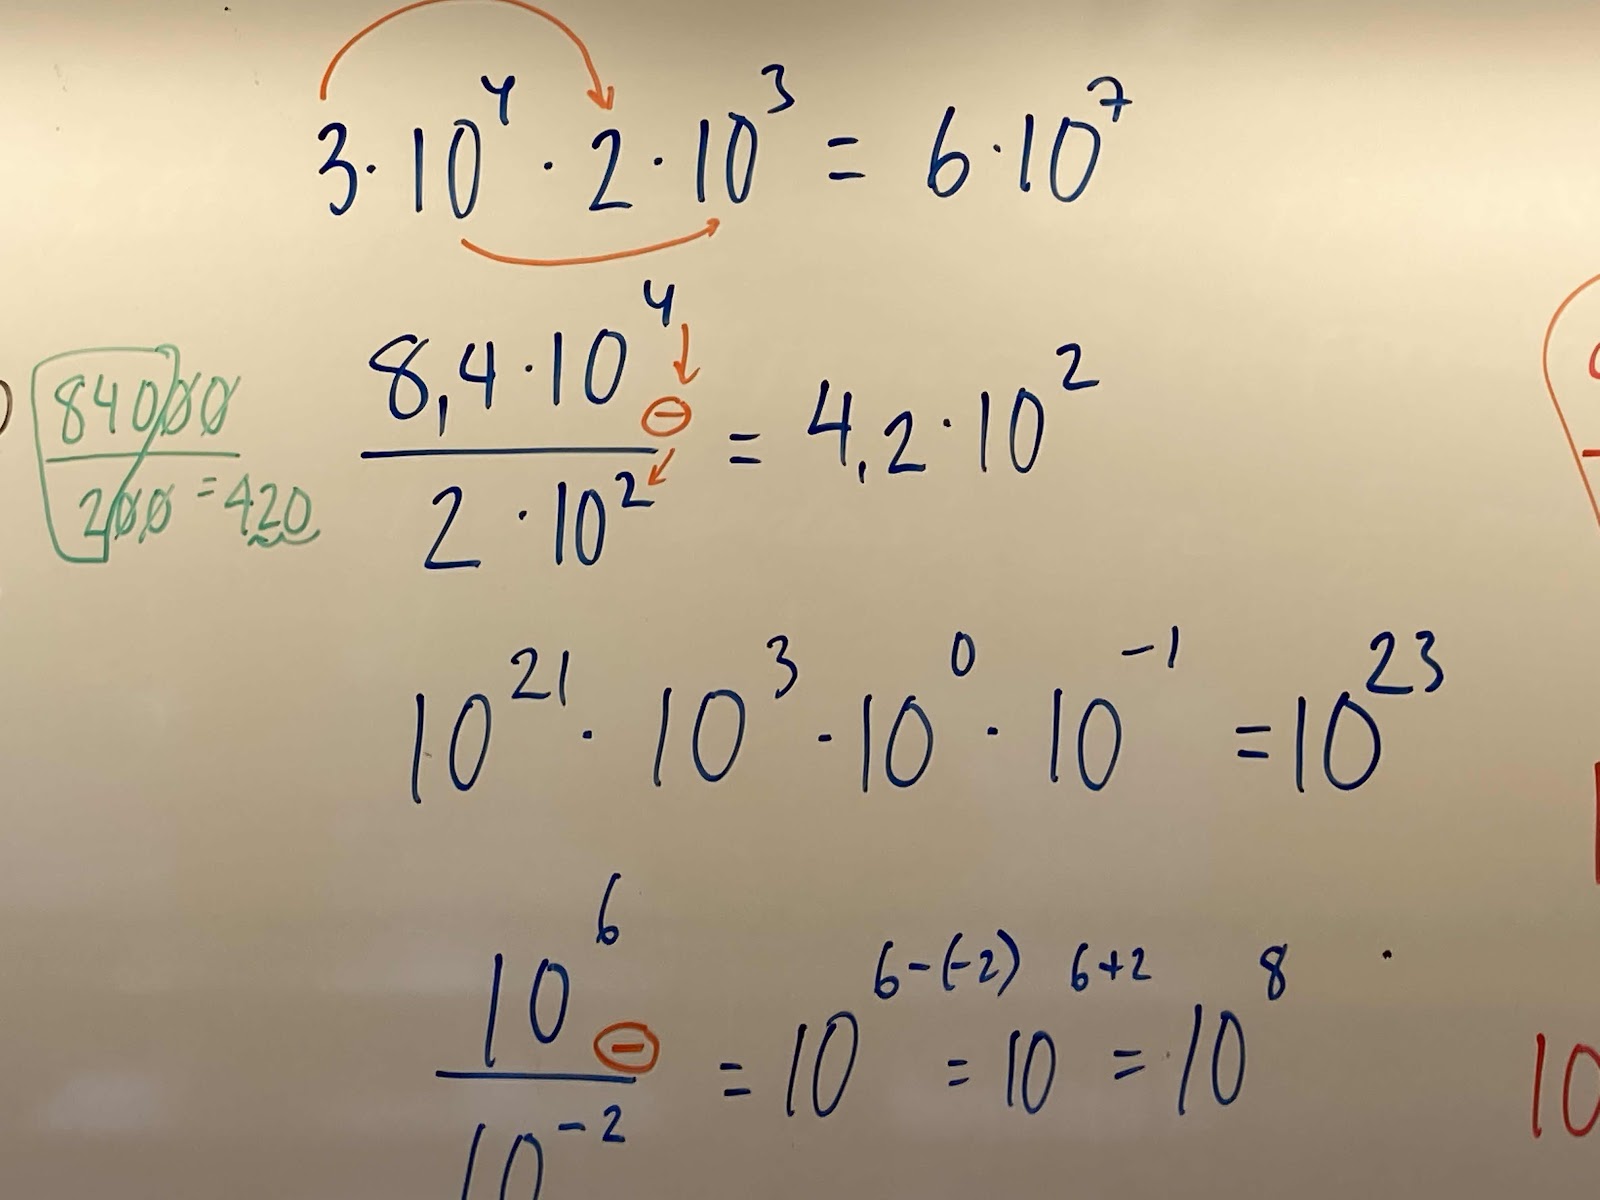 3·10⁴ · 2·10³ = 6·10⁷
84000/200 = 420
8,4·10⁴ ⊖ / 2·10² = 4,2·10²
10²¹ · 10³ · 10⁰ · 10⁻¹ = 10²³
10⁶ ⊖ / 10⁻² = 10⁶⁻⁽⁻²⁾ = 10⁶⁺² = 10⁸
10